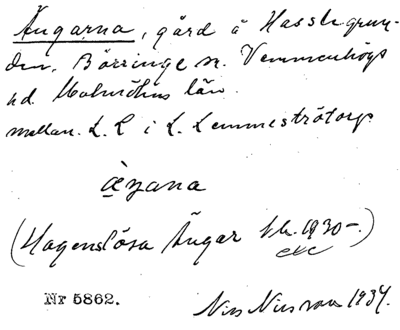 Ängarna, gård å Hasslegrun-
den, Börringe sn. Vemmenhögs
hd. Malmöhus län.
mellan L. L i L. Lemmeströtorp.
ɑ̀̈ŋana
(Hagenslösa Ängar 1930-)
Nr 5862.
Nils Nilsson 1934.